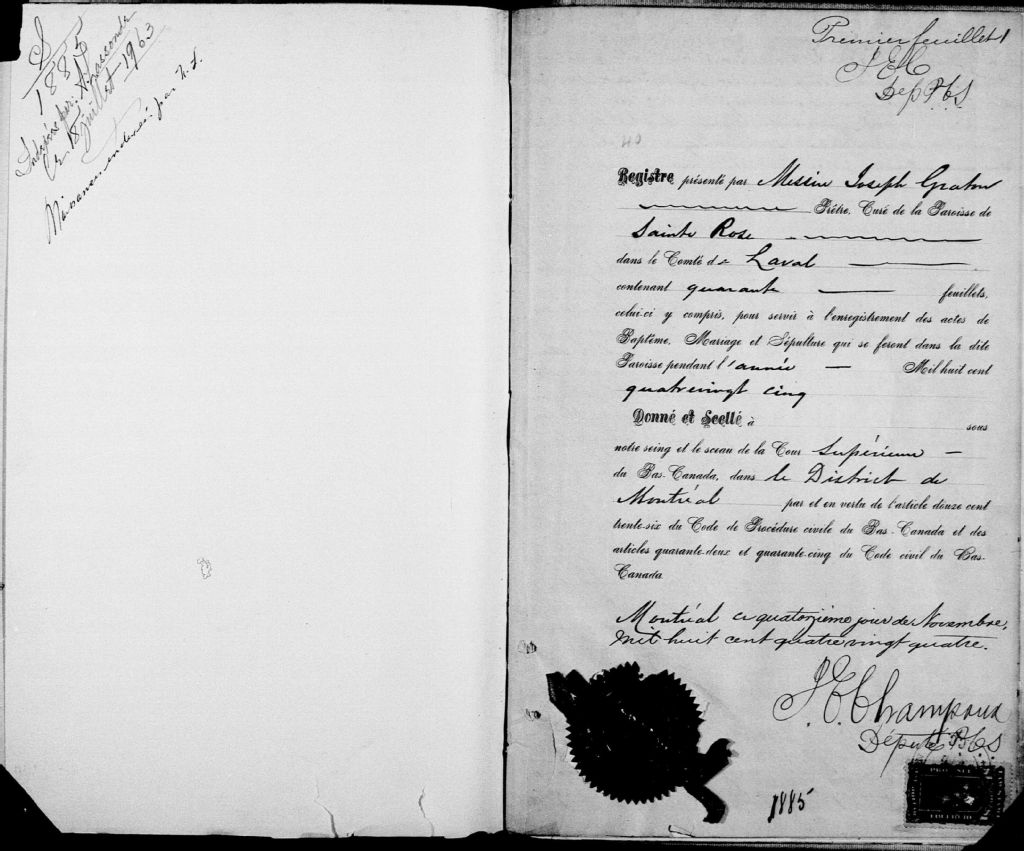 S
1885
Indexé par
Ce 15 juillet 1963
par
Premier feuillet 1
J E C
Dep P C S
40
Registre présenté par Messire Joseph Graton
Prêtre, Curé de la Paroisse de
Sainte Rose
dans le Comté de Laval
contenant quarante feuillets,
celui-ci y compris, pour servir à l'enregistrement des actes de
Baptême, Mariage et Sépulture qui se feront dans la dite
Paroisse pendant l'année Mil huit cent
quatrevingt cinq
Donné et Scellé à sous
notre seing et le sceau de la Cour Supérieure
du Bas-Canada, dans le District de
Montréal par et en vertu de l'article douze cent
trente-six du Code de Procédure civile du Bas-Canada et des
articles quarante-deux et quarante-cinq du Code civil du Bas-
Canada
Montréal ce quatorzième jour de Novembre,
mil huit cent quatre vingt quatre.
J. E. Champoux
Député P.C.S
1885